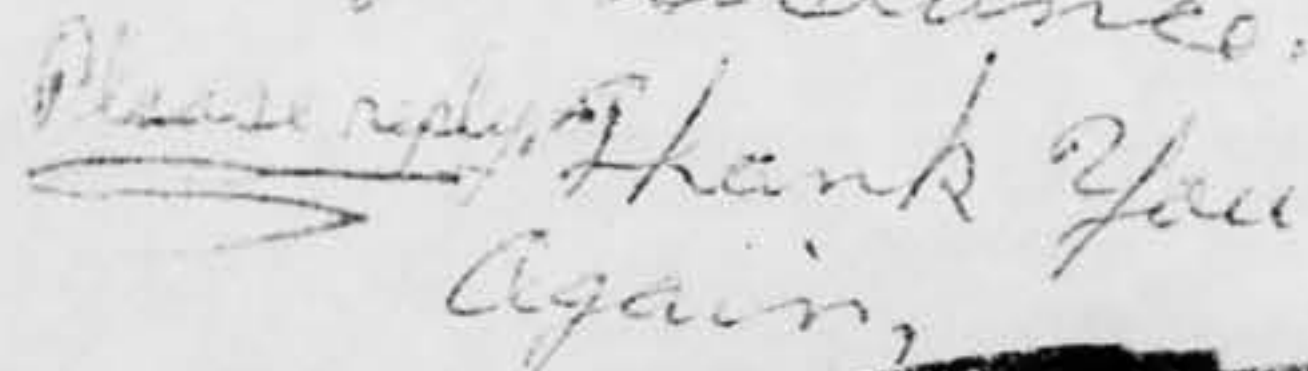 Please reply, Thank You
Again,